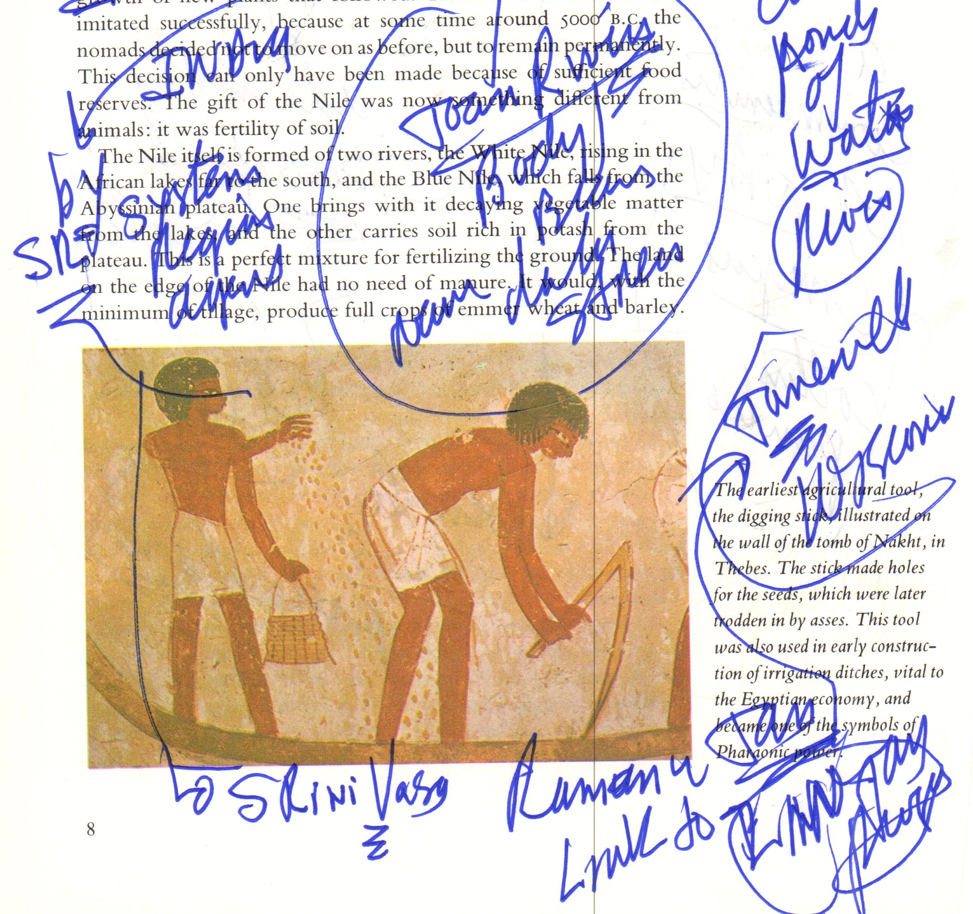 imitated successfully, because at some time around 5000 B.C. the
nomads decided not to move on as before, but to remain permanently.
This decision can only have been made because of sufficient food
reserves. The gift of the Nile was now something different from
animals: it was fertility of soil.
The Nile itself is formed of two rivers, the White Nile, rising in the
African lakes far to the south, and the Blue Nile, which falls from the
Abyssinian plateau. One brings with it decaying vegetable matter
from the lakes, and the other carries soil rich in potash from the
plateau. This is a perfect mixture for fertilizing the ground. The land
on the edge of the Nile had no need of manure. It would, with the
minimum of tillage, produce full crops of emmer wheat and barley.
by
System
Joan Rivers
Body
new
of
Water
River
The earliest agricultural tool,
the digging stick, illustrated on
the wall of the tomb of Nakht, in
Thebes. The stick made holes
for the seeds, which were later
trodden in by asses. This tool
was also used in early construc-
tion of irrigation ditches, vital to
the Egyptian economy, and
became one of the symbols of
Pharaonic power.
to SRINI Vasa
Link to
8